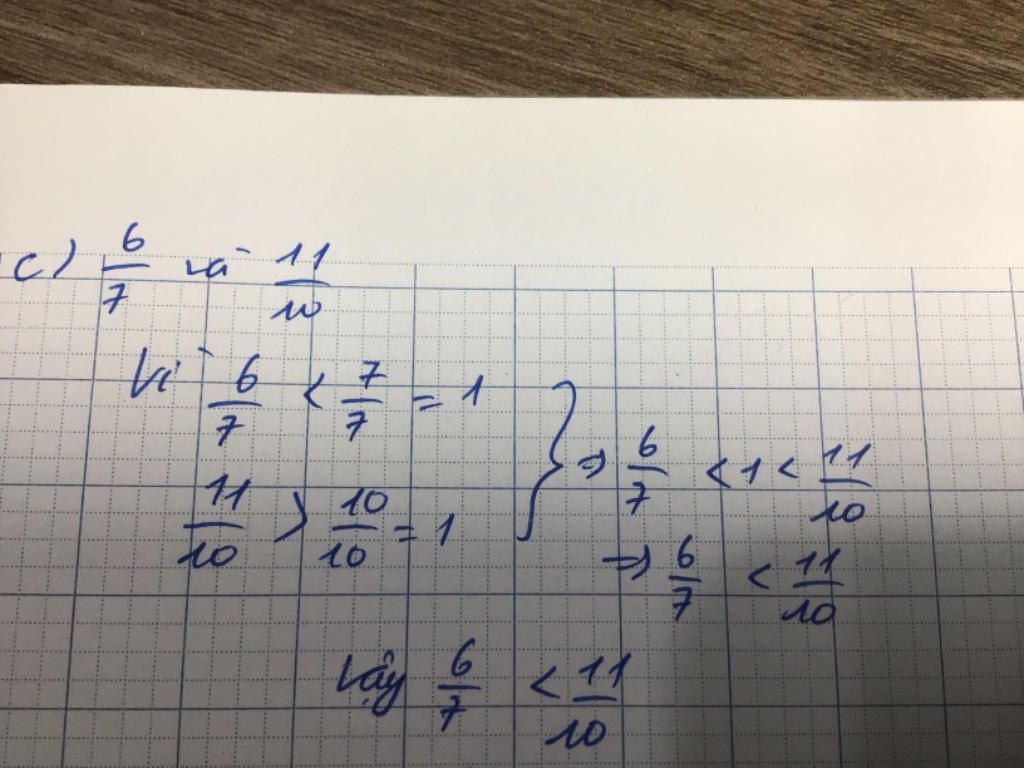 c) 6/7 và 11/10
Vì 6/7 < 7/7 = 1
11/10 > 10/10 = 1
} => 6/7 < 1 < 11/10
=> 6/7 < 11/10
Vậy 6/7 < 11/10